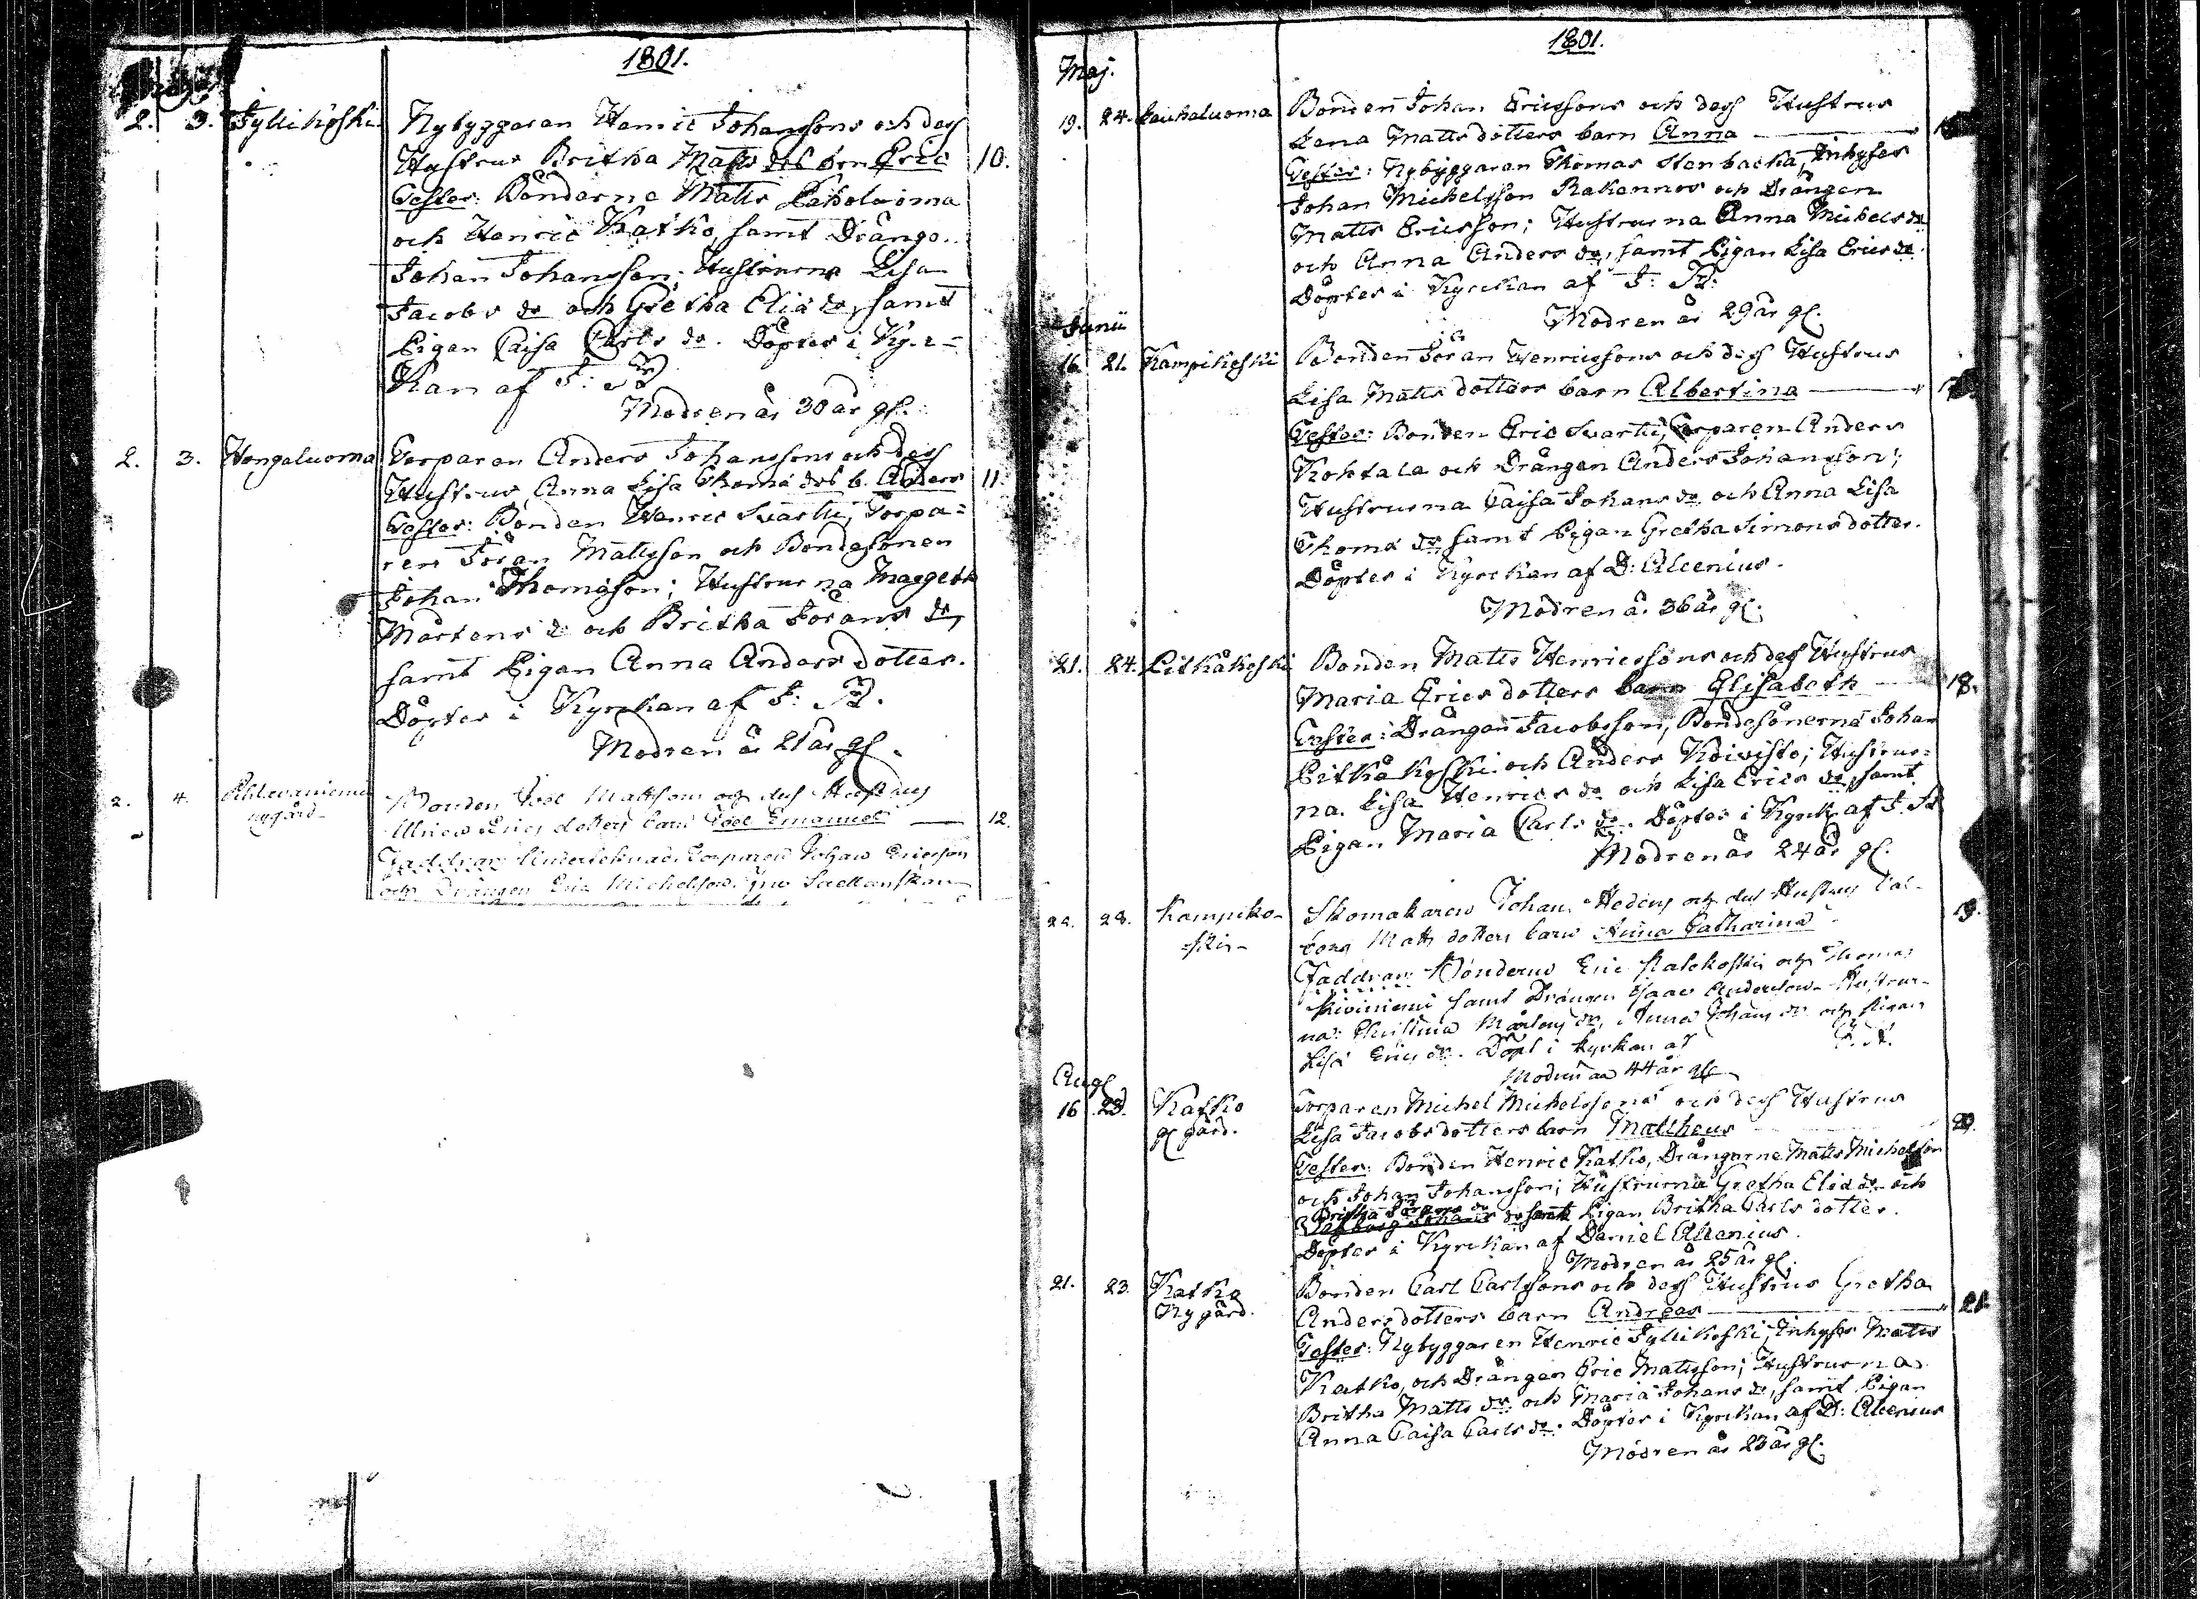 1801.
2. 3. Jyllikoski Nybyggaren Henric Johanssons och dess
Hustrus Britha Matts dot. brn Eric 10.
Testes: Bönderne Matts Kakoluoma
och Henric Katko, samt Drängen
Johan Johansson; Hustrurna Lisa
Jacobs dr och Gretha Eliæ dr, samt
Pigan Caisa Carls dr. Döptes i Kyr-
kan af J: R
Modren är 30 år gl.
2. 3. Hongaluoma Torparen Anders Johanssons och dess
Hustrus Anna Lisa Thomæ dot. b. Anders 11.
Testes: Bonden Henric Svartti, Torpa-
ren Jöran Mattsson och Bondesonen
Johan Thomasson; Hustrurna Margeth
Mårtens dr och Britha Jörans dr,
samt Pigan Anna Anders dotter.
Döptes i Kyrckan af J: R.
Modren är 21 år gl.
2. 4. nygård Bonden Joel Mattsons och dess Hustrus
Erics dotters barn Joel Emanuel 12.
Faddrar: Torparen Johan Ericsson
och Drängen Eric Michelsson
1801.
Maj.
19. 24. Bonden Johan Ericssons och dess Hustrus
Lena Matts dotters barn Anna
Testes: Nybyggaren Thomas Stenbacka, Inhyses
Johan Michelsson Rakennos och Drängen
Matts Ericsson; Hustrurna Anna Michels dr
och Anna Anders dr, samt Pigan Lisa Erics dr.
Döptes i Kyrckan af J: R:
Modren är 29 år gl.
Junii
16. 21. Kampikoski Bonden Jöran Henricssons och dess Hustrus
Lisa Matts dotters barn Albertina
Testes: Bonden Eric Svartti, Torparen Anders
Kohtala och Drängen Anders Johansson;
Hustrurna Caisa Johans dr och Anna Lisa
Thomæ dr samt Pigan Gretha Simons dotter.
Döptes i Kyrckan af D: Alcenius.
Modren är 36 år gl.
21. 24. Pitkäkoski Bonden Matts Henricssons och dess Hustrus
Maria Erics dotters barn Elisabeth 18.
Testes: Drängen Jacobsson, Bondesönerna Johan
Pitkäkoski och Anders Koivisto; Hustrur-
na. Lisa Henrics dr och Lisa Erics dr, samt
Pigan Maria Carls dr. Döptes i Kyrck. af J. R
Modren är 24 år gl.
22. 28. Kampiko-
ski Skomakaren Johan Hedens och dess Hustrus Val-
borg Matts dotters barn Anna Catharina 19.
Faddrar: Bönderne Eric Kalckoski och Thomas
Kiviniemi samt Drängen Isaac Andersson. Hustrur-
na: Christina Mårtens dr, Anna Johans dr och Pigan
Lisa Erics dr. Döpt i kyrkan af J. R.
Modren är 44 år gl.
Aug.
16. 23. Katko
gl. gård. Torparen Michel Michelssons och dess Hustrus
Lisa Jacobs dotters barn Mattheus 20.
Testes: Bonden Henric Katko, Drängarne Matts Michelsson
och Johan Johansson; Hustrurna Gretha Eliæ dr och
Britha Jörans dr
samt Pigan Britha Carls dotter.
Döptes i Kyrckan af Daniel Alcenius.
Modren är 25 år gl.
21. 23. Katko
Nygård. Bonden Carl Carlssons och dess Hustrus Gretha
Anders dotters barn Andreas 21.
Testes: Nybyggaren Henric Jyllikoski, Inhyses Matts
Katko, och Drängen Eric Mattsson; Hustrurna
Britha Matts dr och Maria Johans dr, samt Pigan
Anna Caisa Carls dr. Döptes i Kyrckan af D: Alcenius
Modren är 23 år gl.